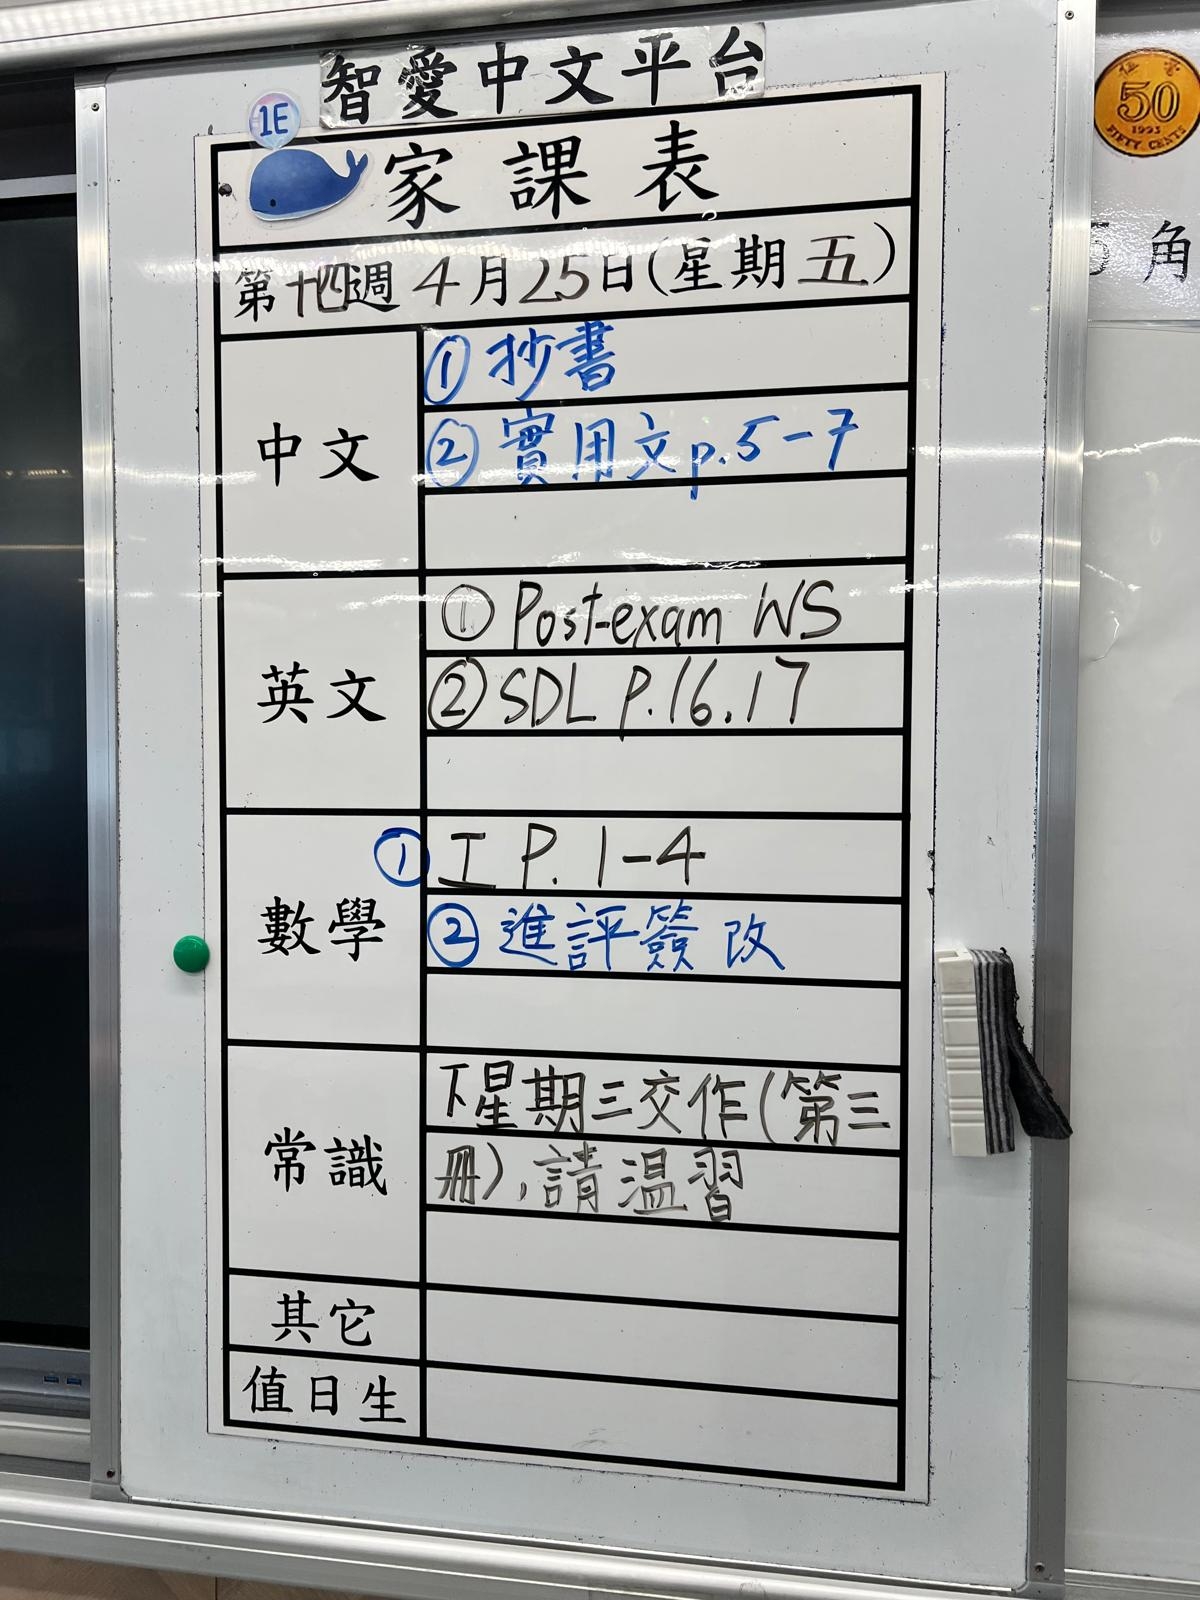 智愛中文平台
1E
家課表
第十四週 4月25日(星期五)
中文
①抄書
②實用文p.5-7
英文
①Post-exam WS
②SDL P.16.17
數學
①工 P.1-4
②進評簽改
常識
下星期三交作(第三
冊),請溫習
其它
值日生
50
1993
FIFTY CENTS
角